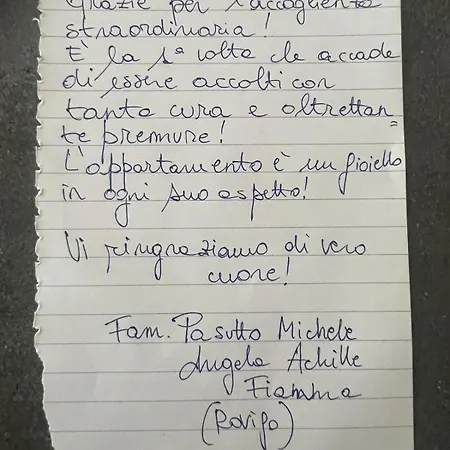 Grazie per l'accoglienza
straordinaria!
È la 1ª volta che accade
di essere accolti con
tanta cura e oltrettan=
te premure!
L'appartamento è un gioiello
in ogni suo aspetto!
Vi ringraziamo di vero
cuore!
Fam. Pasutto Michele
Angela Achille
Fiamma
(Rovigo)